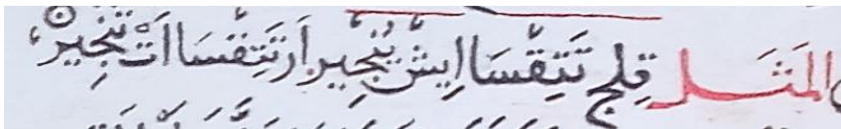 المَثَل قِلِج تَتِقْسَا اِيشْ يُنْجِير اَرْ تَتِقْسَا اَتْ تِنْجِيرْ